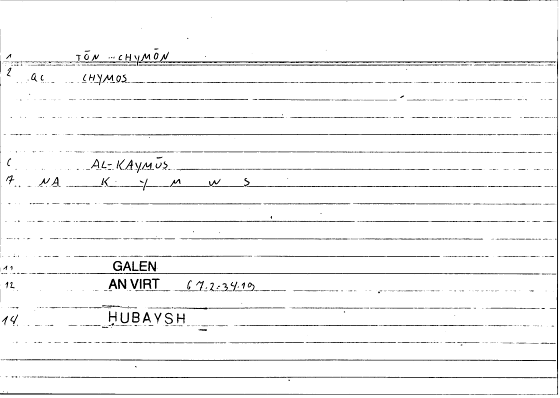 1 TŌN -- CHYMŌN
2 ac CHYMOS
6 AL-KAYMŪS
7 NA K Y M W S
11 GALEN
12 AN VIRT 67.2:34.19
14 HUBAYSH